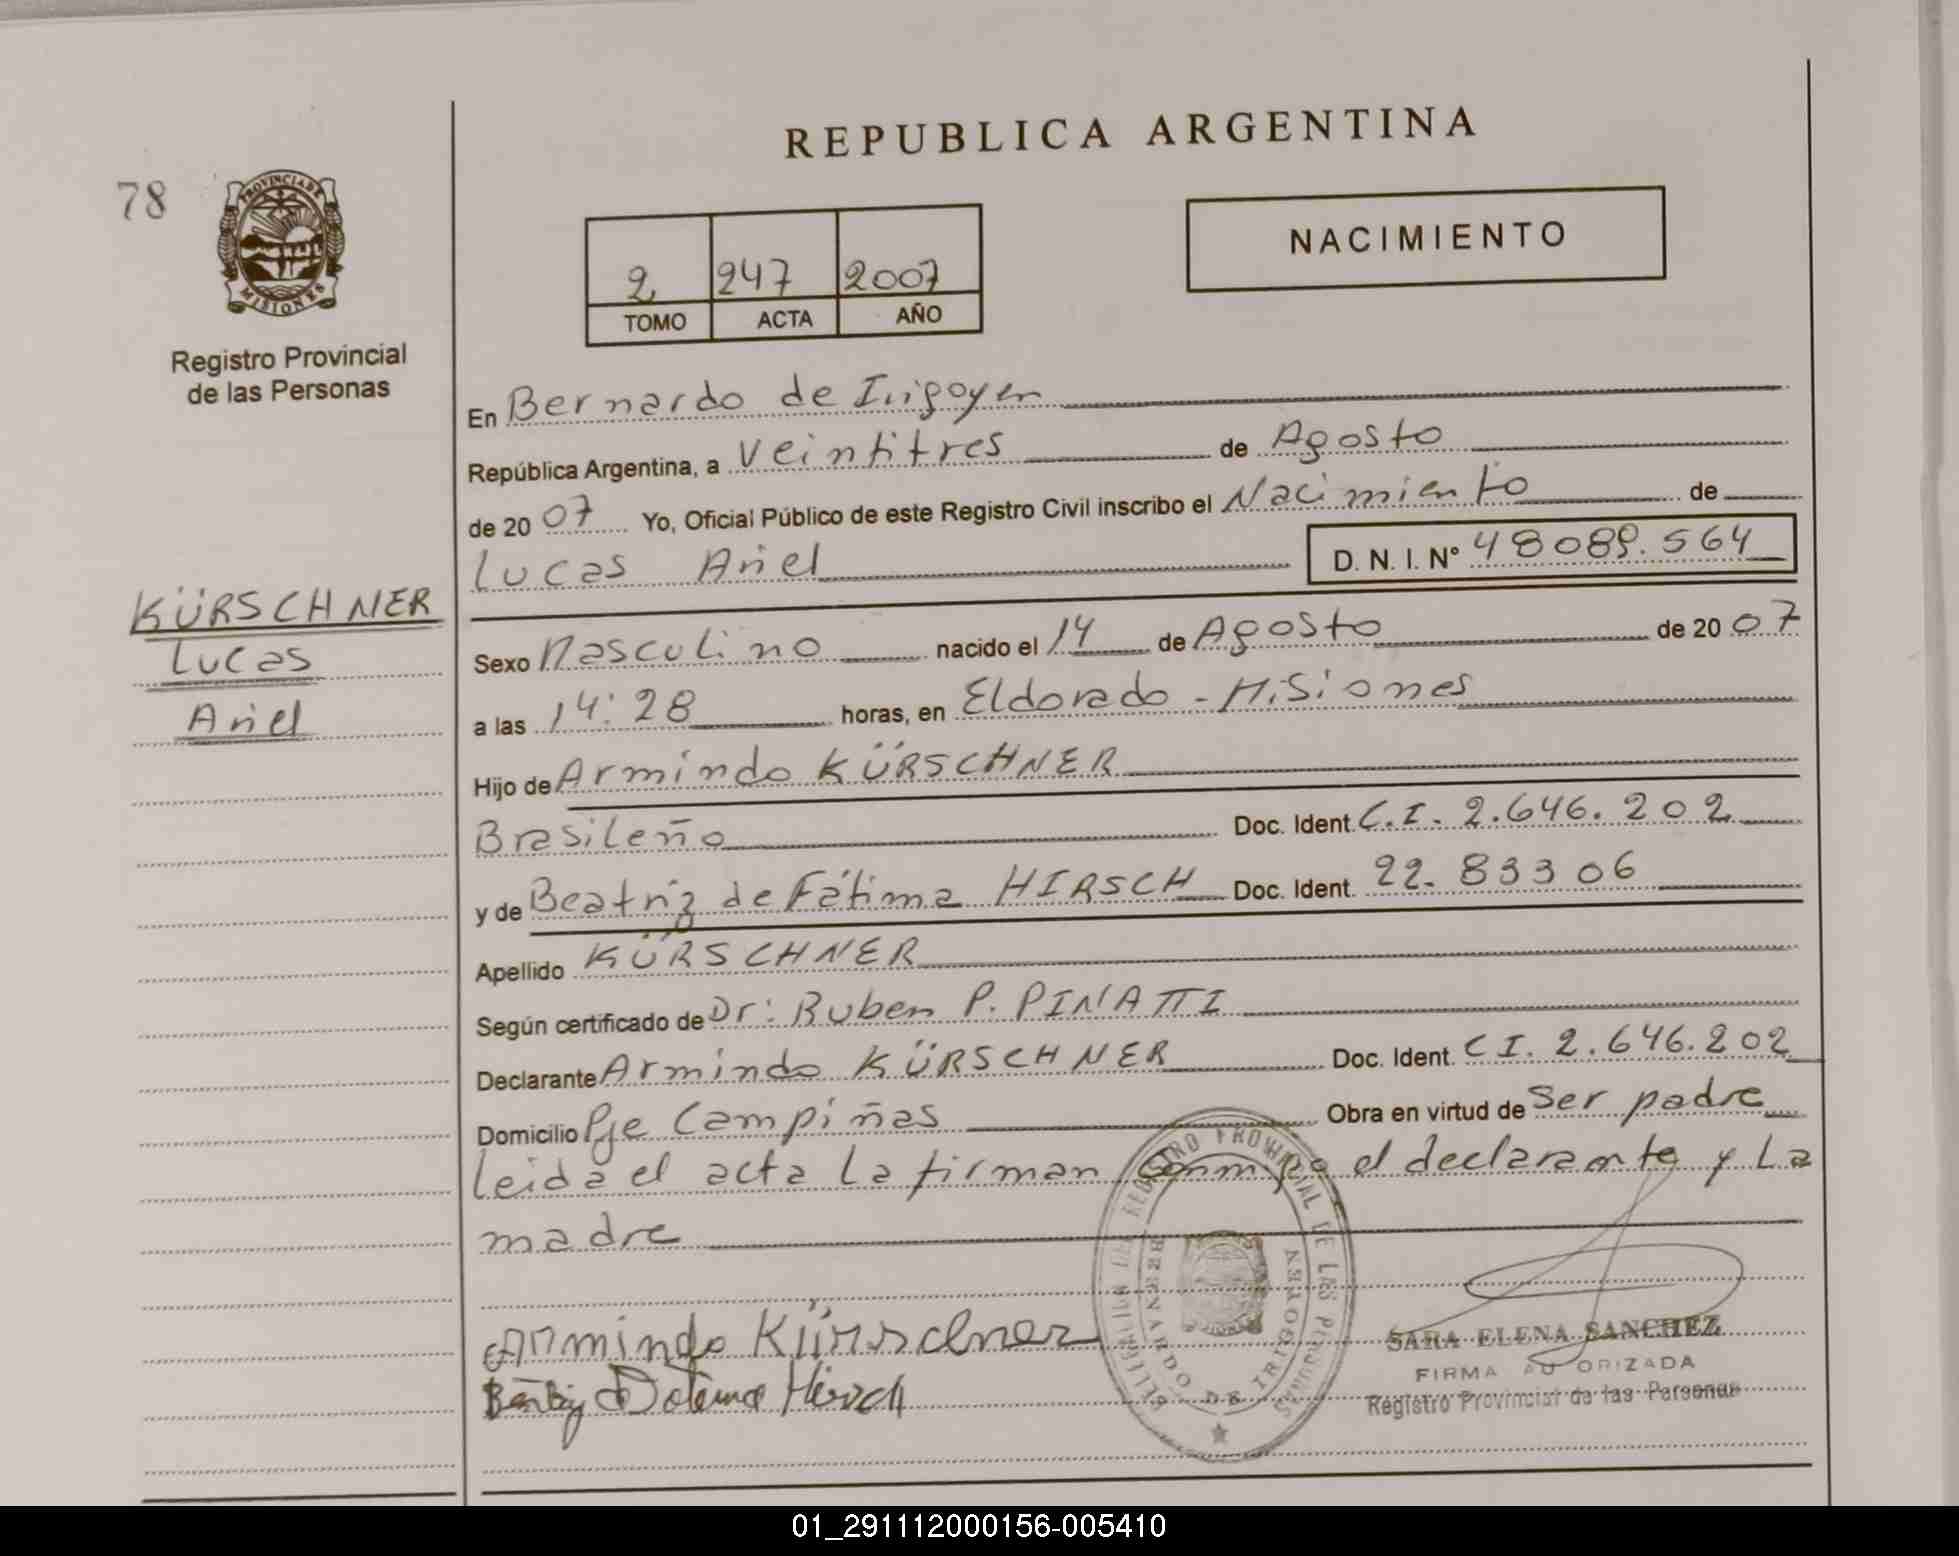 REPUBLICA ARGENTINA
78
PROVINCIA DE
MISIONES
Registro Provincial
de las Personas
NACIMIENTO
2 247 2007
TOMO ACTA AÑO
En Bernardo de Irigoyen
República Argentina, a Veintitres de Agosto
de 20 07 Yo, Oficial Público de este Registro Civil inscribo el Nacimiento de
Lucas Ariel D. N. I. N° 48089.564
KÜRSCHNER
Lucas
Ariel
Sexo Masculino nacido el 14 de Agosto de 20 07
a las 14:28 horas, en Eldorado - Misiones
Hijo de Armindo KÜRSCHNER
Brasileño Doc. Ident. C.I. 2.646.202
y de Beatriz de Fátima HIRSCH Doc. Ident. 22.83306
Apellido KÜRSCHNER
Según certificado de Dr: Ruben P. PINATTI
Declarante Armindo KÜRSCHNER Doc. Ident. CI. 2.646.202
Domicilio Pje Campiñas Obra en virtud de Ser padre
leida el acta la firman conmigo el declarante y La
madre
Armindo Kürschner
Hirsch
REGISTRO PROVINCIAL DE LAS PERSONAS
BERNARDO DE IRIGOYEN
SARA ELENA SANCHEZ
FIRMA AUTORIZADA
Registro Provincial de las Personas
01_291112000156-005410